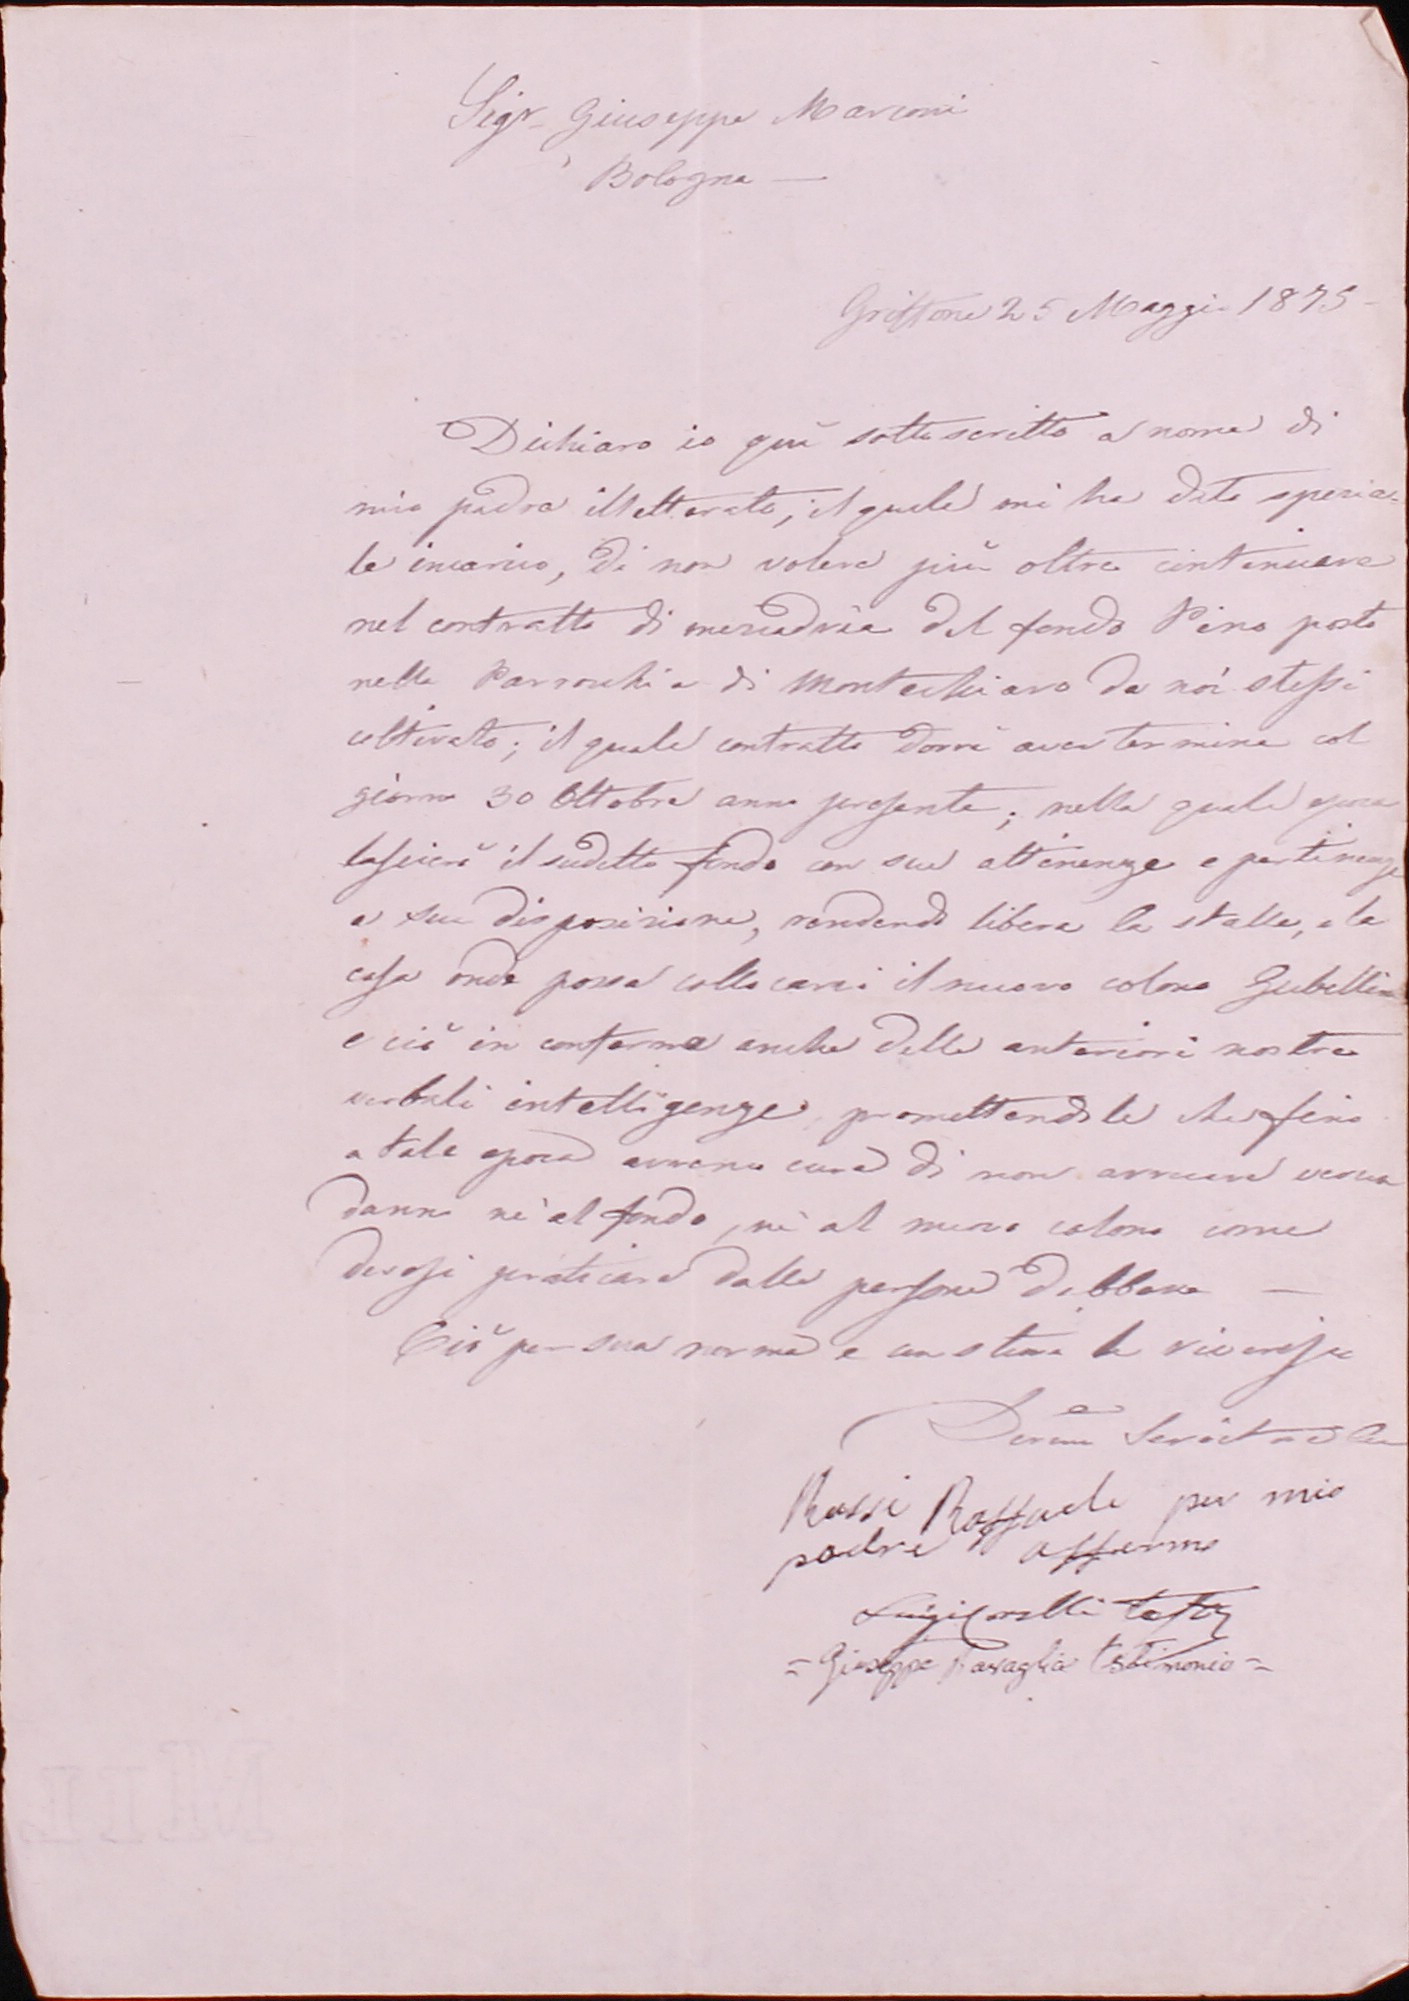 Sigr. Giuseppe Marconi
Bologna —
Griffone 25 Maggio 1875 -
Dichiaro io quì sottoscritto a nome di
mio padre illetterato, il quale mi ha dato specia-
le incarico, di non volere più oltre continuare
nel contratto di mezzadria del fondo Pino posto
nella Parrochia di Montechiaro da noi stessi
coltivato; il quale contratto dovrà aver termine col
giorno 30 Ottobre anno presente; nella quale epoca
lascierò il sudetto fondo con sue attinenze e pertinenze
a sua disposizione, rendendo libera la stalla, e la
casa onde possa collocarvi il nuovo colono Gubellini
e ciò in conferma anche delle anteriori nostre
verbali intelligenze, promettendole che fino
a tale epoca avremo cura di non arrecare verun
danno nè al fondo, nè al nuovo colono come
devesi praticare dalle persone dabbene —
Ciò per sua norma e con stima la riverisco
Devmo Servitore
Rossi Raffaele per mio
padre affermo
Luigi testio
= Giuseppe Ravaglia testimonio =
MIL